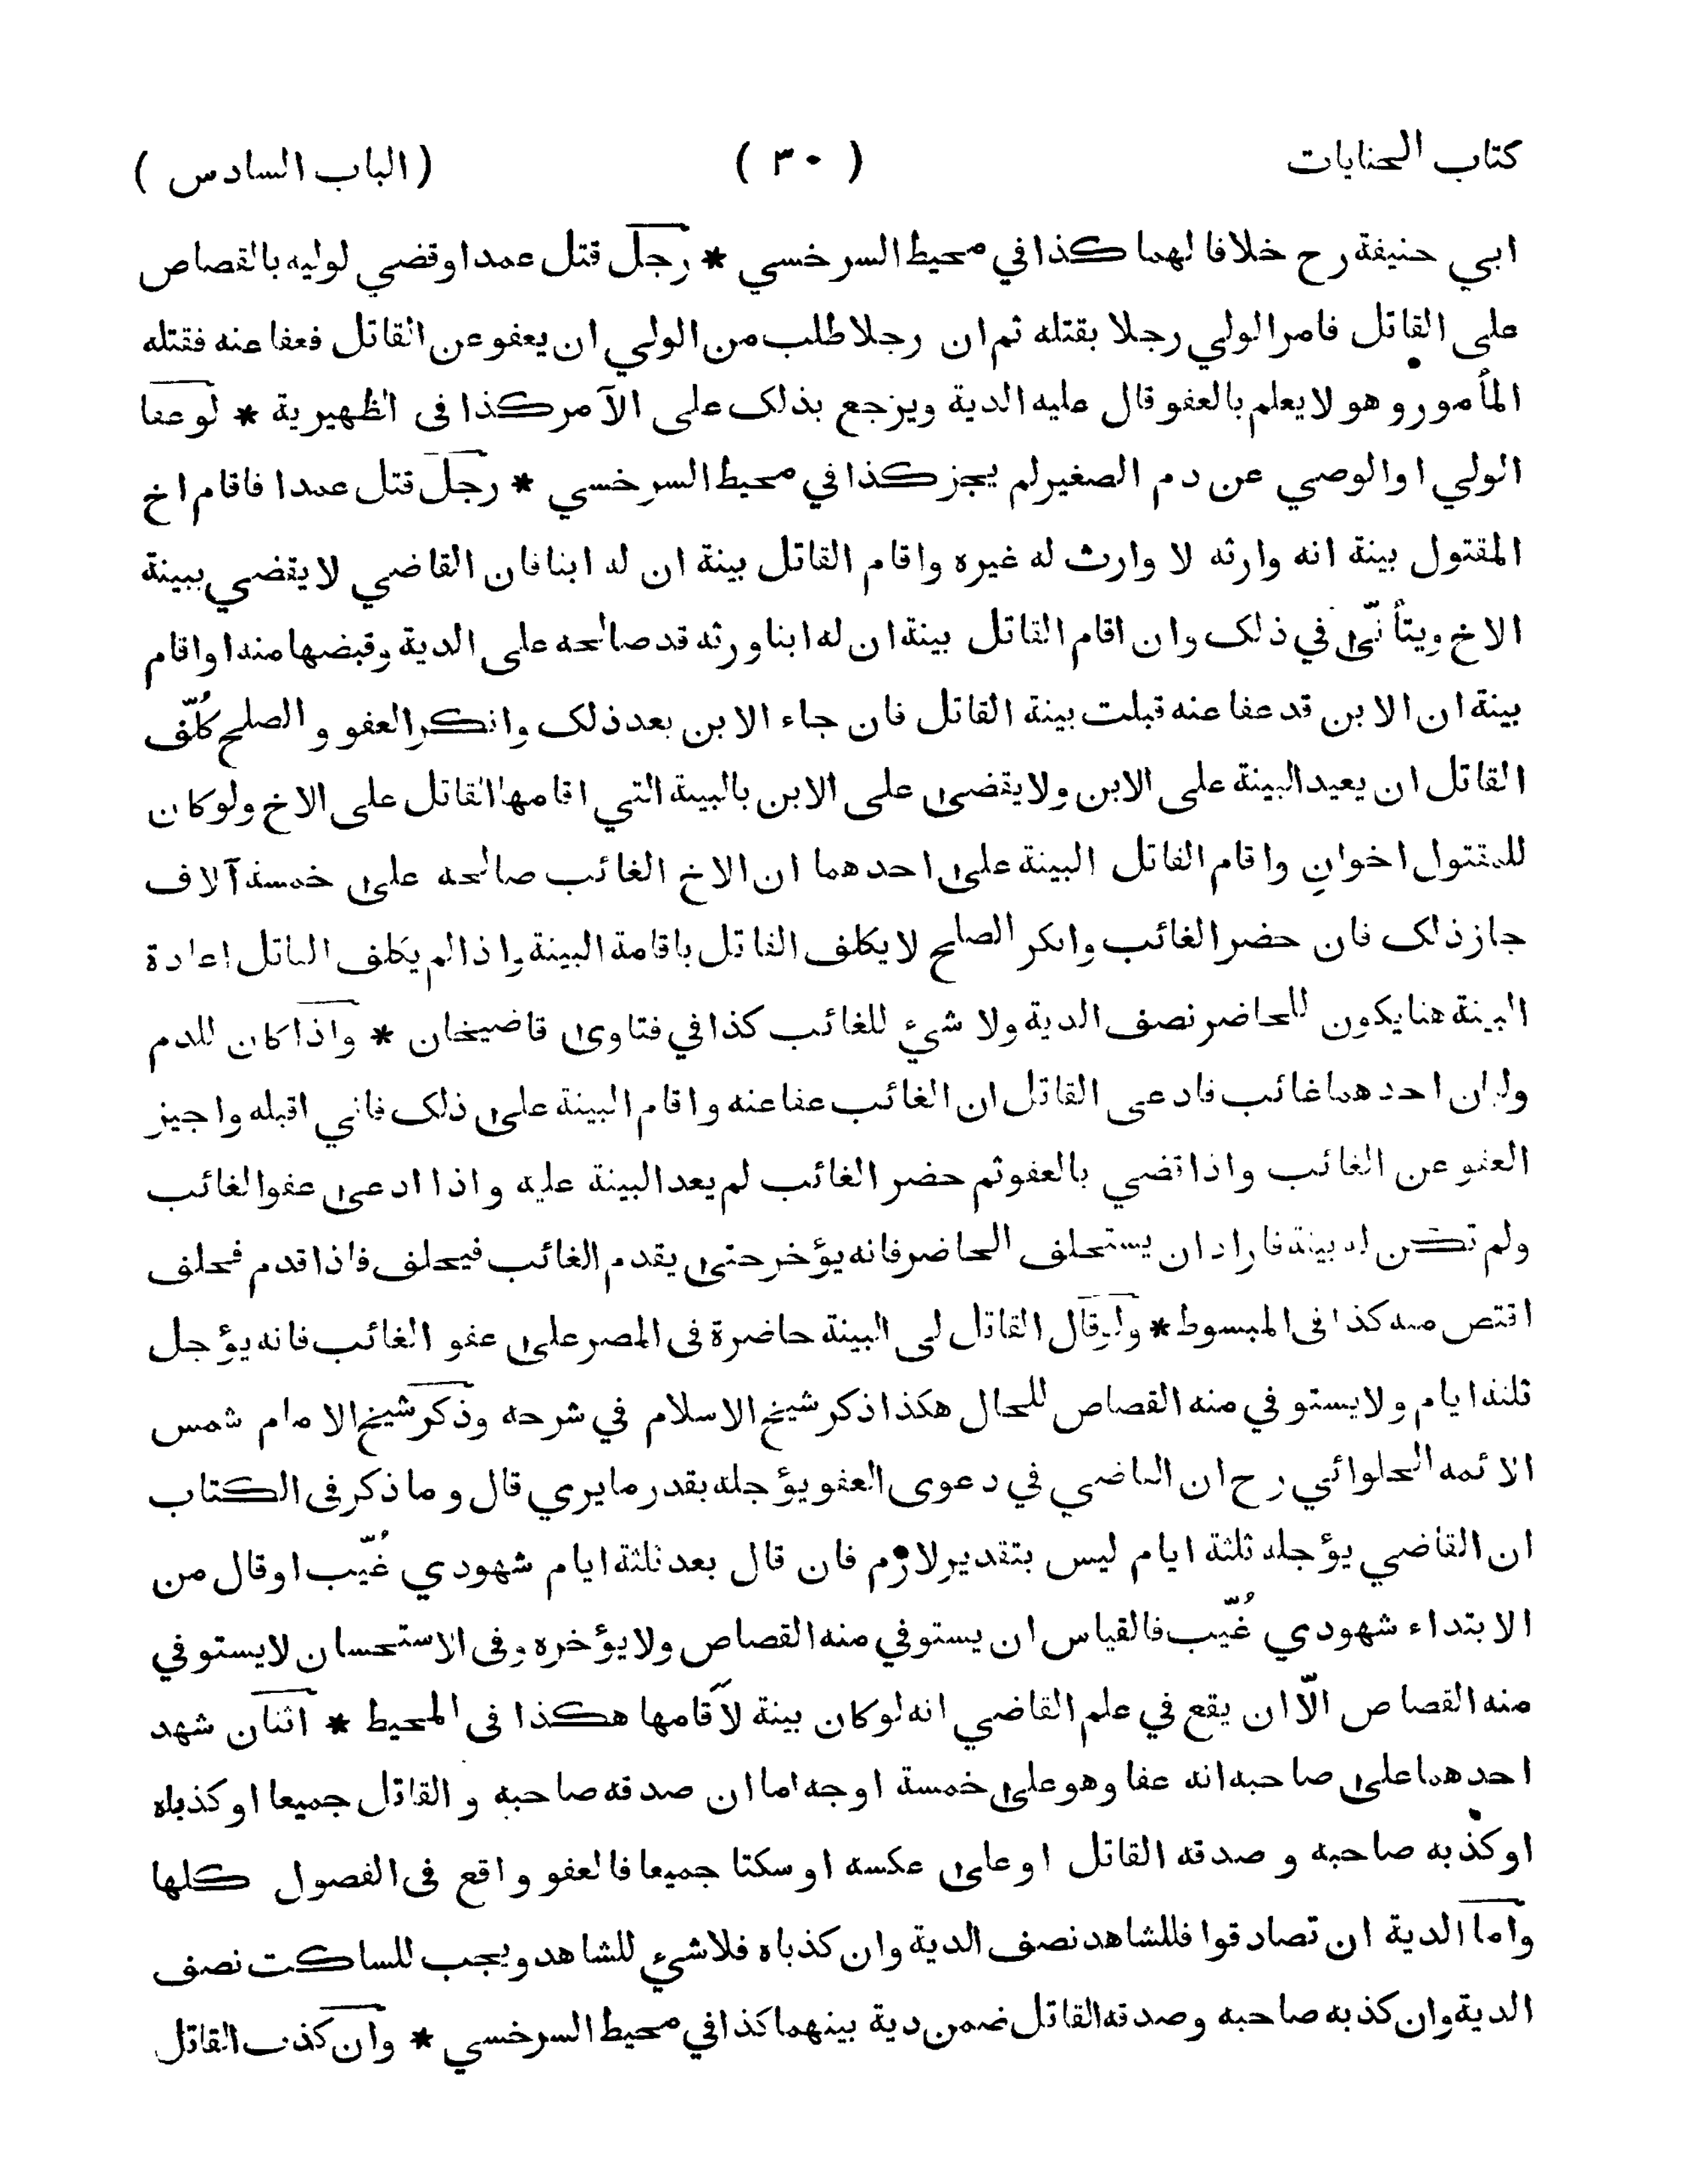 كتاب الجنايات ( ٣٠ ) ( الباب السادس )
ابي حنيفة رح خلافا لهما كذا في محيط السرخسي * رجل قتل عمدا وقضي لوليه بالقصاص
على القاتل فامر الولي رجلا بقتله ثم ان رجلا طلب من الولي ان يعفو عن القاتل فعفا عنه فقتله
المأمور و هو لا يعلم بالعفو قال عليه الدية ويرجع بذلك على الآمر كذا فى الظهيرية * لو عفا
الولي او الوصي عن دم الصغير لم يجز كذا في محيط السرخسي * رجل قتل عمدا فاقام اخ
المقتول بينة انه وارثه لا وارث له غيره واقام القاتل بينة ان له ابنا فان القاضي لا يقضي ببينة
الاخ ويتأنّى في ذلك وان اقام القاتل بينة ان له ابنا ورثه قد صالحه على الدية وقبضها منه او اقام
بينة ان الابن قد عفا عنه قبلت بينة القاتل فان جاء الابن بعد ذلك وانكر العفو و الصلح كُلّف
القاتل ان يعيد البينة على الابن ولا يقضى على الابن بالبينة التي اقامها القاتل على الاخ ولو كان
للمقتول اخوانِ واقام القاتل البينة على احدهما ان الاخ الغائب صالحه على خمسة آلاف
جاز ذلك فان حضر الغائب وانكر الصلح لا يكلف القاتل باقامة البينة واذا لم يكلف القاتل اعادة
البينة هنا يكون للحاضر نصف الدية ولا شيء للغائب كذا في فتاوى قاضيخان * واذا كان للدم
وليان احدهما غائب فادعى القاتل ان الغائب عفا عنه واقام البينة على ذلك فاني اقبله واجيز
العفو عن الغائب واذا قضي بالعفو ثم حضر الغائب لم يعد البينة عليه واذا ادعى عفو الغائب
ولم تكن له بينة فاراد ان يستحلف الحاضر فانه يؤخر حتى يقدم الغائب فيحلف فاذا قدم فحلف
اقتص منه كذا فى المبسوط * ولو قال القاتل لى البينة حاضرة فى المصر على عفو الغائب فانه يؤجل
ثلثة ايام ولا يستوفي منه القصاص للحال هكذا ذكر شيخ الاسلام في شرحه وذكر شيخ الامام شمس
الائمه الحلوائي رح ان القاضي في دعوى العفو يؤجله بقدر ما يرى قال و ما ذكر فى الكتاب
ان القاضي يؤجله ثلثة ايام ليس بتقدير لازم فان قال بعد ثلثة ايام شهودي غُيّب او قال من
الابتداء شهودي غُيّب فالقياس ان يستوفي منه القصاص ولا يؤخره وفى الاستحسان لا يستوفي
منه القصاص الّا ان يقع في علم القاضي انه لو كان بينة لاقامها هكذا فى المحيط * اثنان شهد
احدهما على صاحبه انه عفا وهو على خمسة اوجه اما ان صدقه صاحبه و القاتل جميعا او كذباه
او كذبه صاحبه و صدقه القاتل او على عكسه او سكتا جميعا فالعفو واقع فى الفصول كلها
واما الدية ان تصادقوا فللشاهد نصف الدية وان كذباه فلا شيء للشاهد ويجب للساكت نصف
الدية وان كذبه صاحبه وصدقه القاتل ضمن دية بينهما كذا في محيط السرخسي * وان كذب القاتل